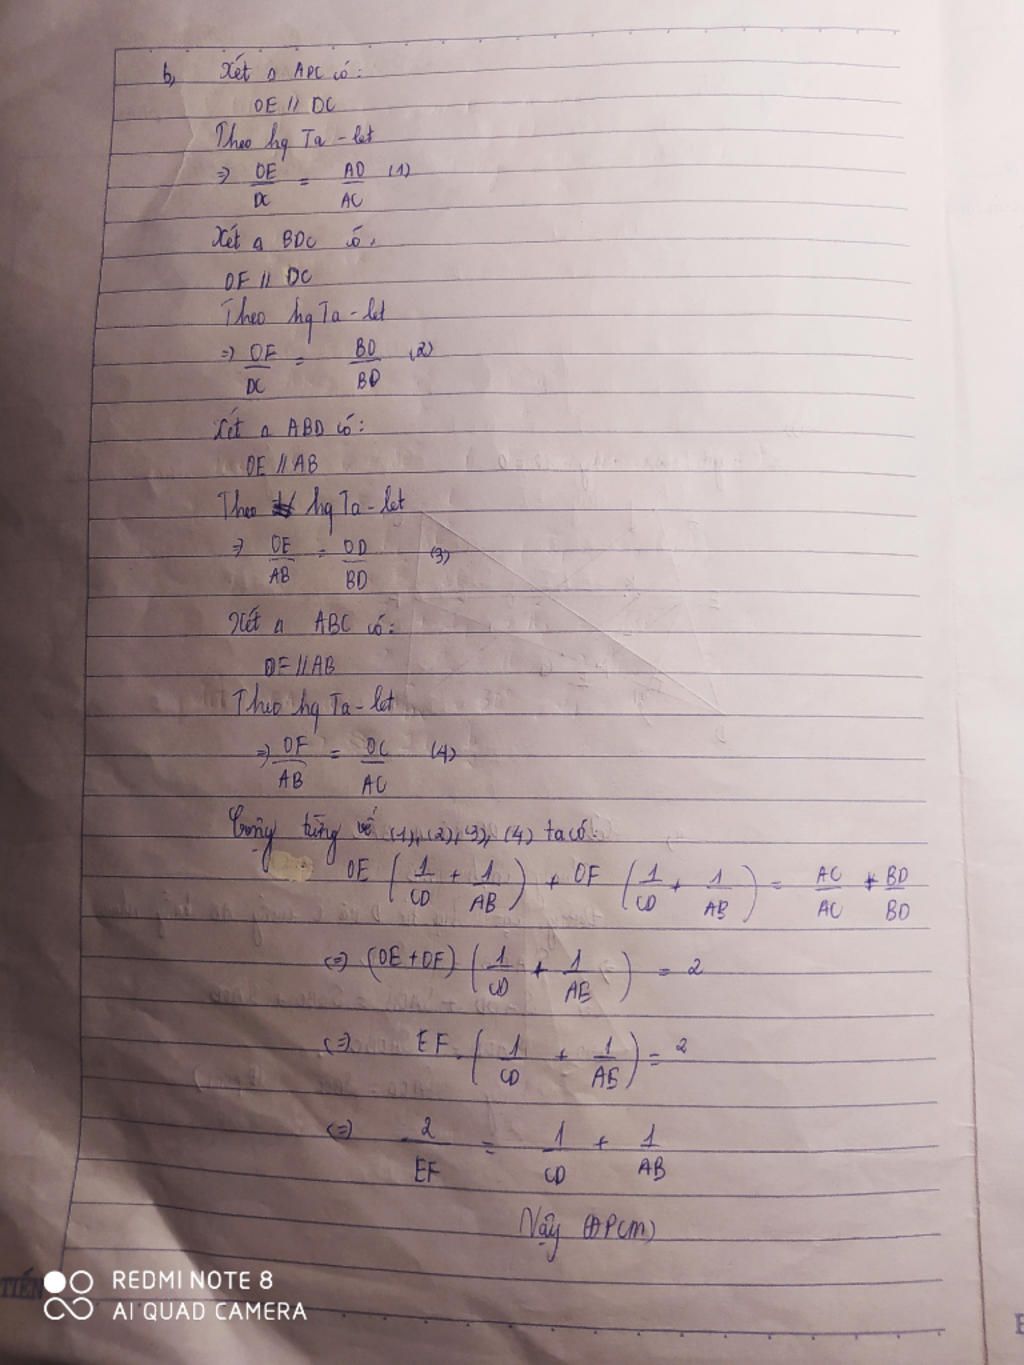 b, Xét Δ ADC có:
OE // DC
Theo hq Ta-let
=> OE/DC = AO/AC (1)
Xét Δ BDC có,
OF // DC
Theo hq Ta-let
=> OF/DC = BO/BD (2)
Xét Δ ABD có:
OE // AB
Theo hq Ta-let
=> OE/AB = OD/BD (3)
Xét Δ ABC có:
OF // AB
Theo hq Ta-let
=> OF/AB = OC/AC (4)
Cộng từng vế (1), (2), (3), (4) ta có:
OE (1/CD + 1/AB) + OF (1/CD + 1/AB) = AC/AC + BD/BD
<=> (OE + OF) (1/CD + 1/AB) = 2
<=> EF. (1/CD + 1/AB) = 2
<=> 2/EF = 1/CD + 1/AB
Vậy (ĐPCM)
TIẾN
REDMI NOTE 8
AI QUAD CAMERA